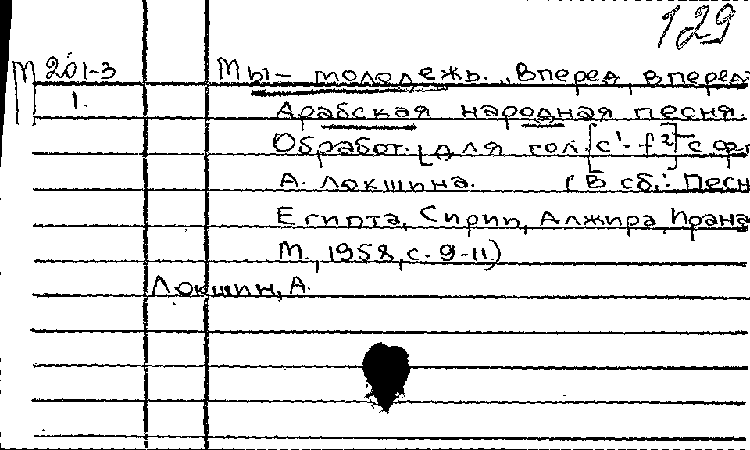 129
М 201-3 Мы – молодежь. „Вперед, вперед
1. Арабская народная песня.
Обработ. [для гол. [c¹-f²] с фп
А. Локшина. (В сб.: Песн
Египта, Сирии, Алжира, Ирана
М, 1958, с. 9-11)
Локшин, А.